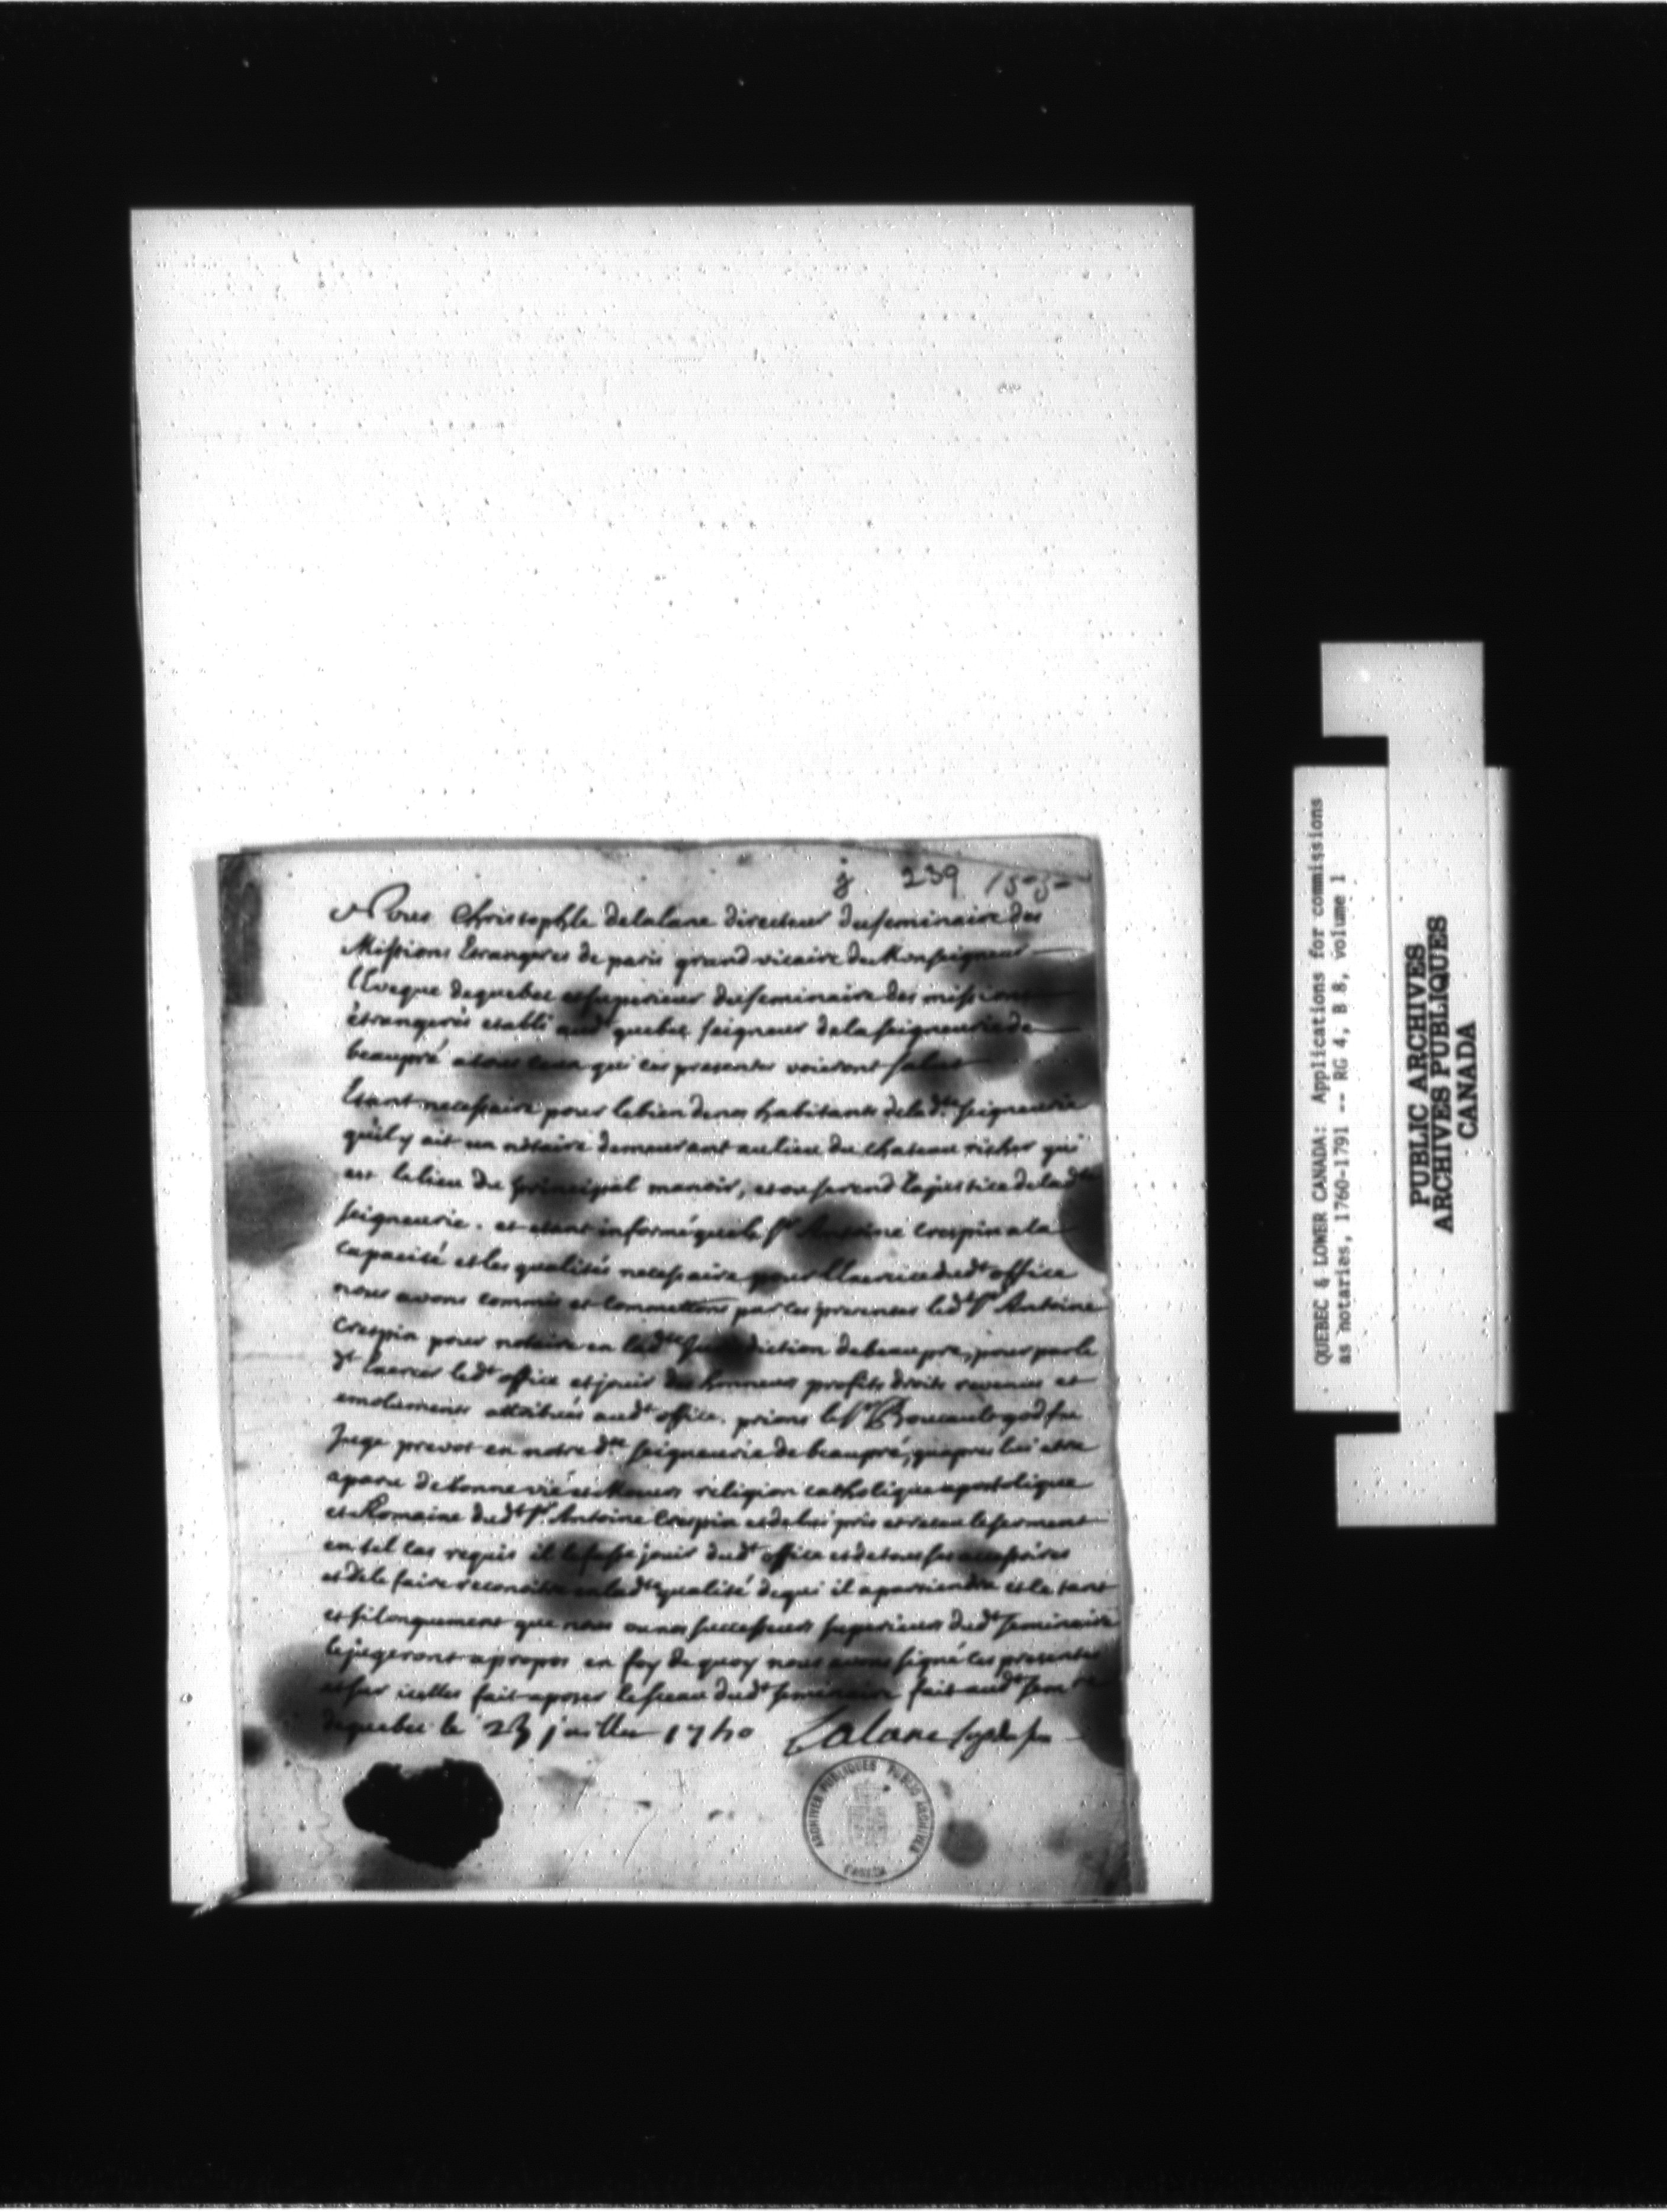 j 239
Nous Christophle delalane directeur du seminaire des
Missions Etrangeres de paris grand vicaire de Monseigneur
l'Eveque de quebec et superieur du seminaire des missions
étrangerés etabli audt quebec seigneur de la seigneurie de
beaupré a tous ceux qui ces presentes voieront salut
Etant necessaire pour le bien de nos habitants de ladte seigneurie
quil y ait un notaire demeurant au lieu du chateau richer qui
est le lieu du principal manoir, et ou se rend la justice de ladte
seigneurie. et etant informé que le Sr Antoine Crespin a la
capacité et les qualités necessaire pour l'exercice dudt office
nous avons commis et commettons par ces presentes ledt Sr Antoine
Crespin pour notaire en ladte Jurisdiction de beaupré, pour par le
dt Exercer ledt office et jouir des honneurs profits droits revenus et
emoluments attribués audt office. prions le Sr Boucault godfu
Juge prevot en notre dte seigneurie de beaupré, quapres lui etre
aparu de bonne vie et Moeurs religion catholique apostolique
et Romaine dudt Sr Antoine Crespin et de lui pris et receu le serment
en tel cas requis il le fasse jouir dudt office et de tous ses accessoires
et de le faire reconoitre en ladte qualité de qui il apartiendra et le tant
et si longuement que nous ou nos successeurs superieurs dudt seminaire
le jugeront apropos en foy de quoy nous avons signé ces presentes
et sur icelles fait aposer le sceau dudt seminaire fait audt semre
de quebec le 23 juillet 1740 Lalane
ARCHIVES PUBLIQUES PUBLIC ARCHIVES
CANADA
QUEBEC & LOWER CANADA: Applications for commissions
as notaries, 1760-1791 -- RG 4, B 8, volume 1
PUBLIC ARCHIVES
ARCHIVES PUBLIQUES
CANADA